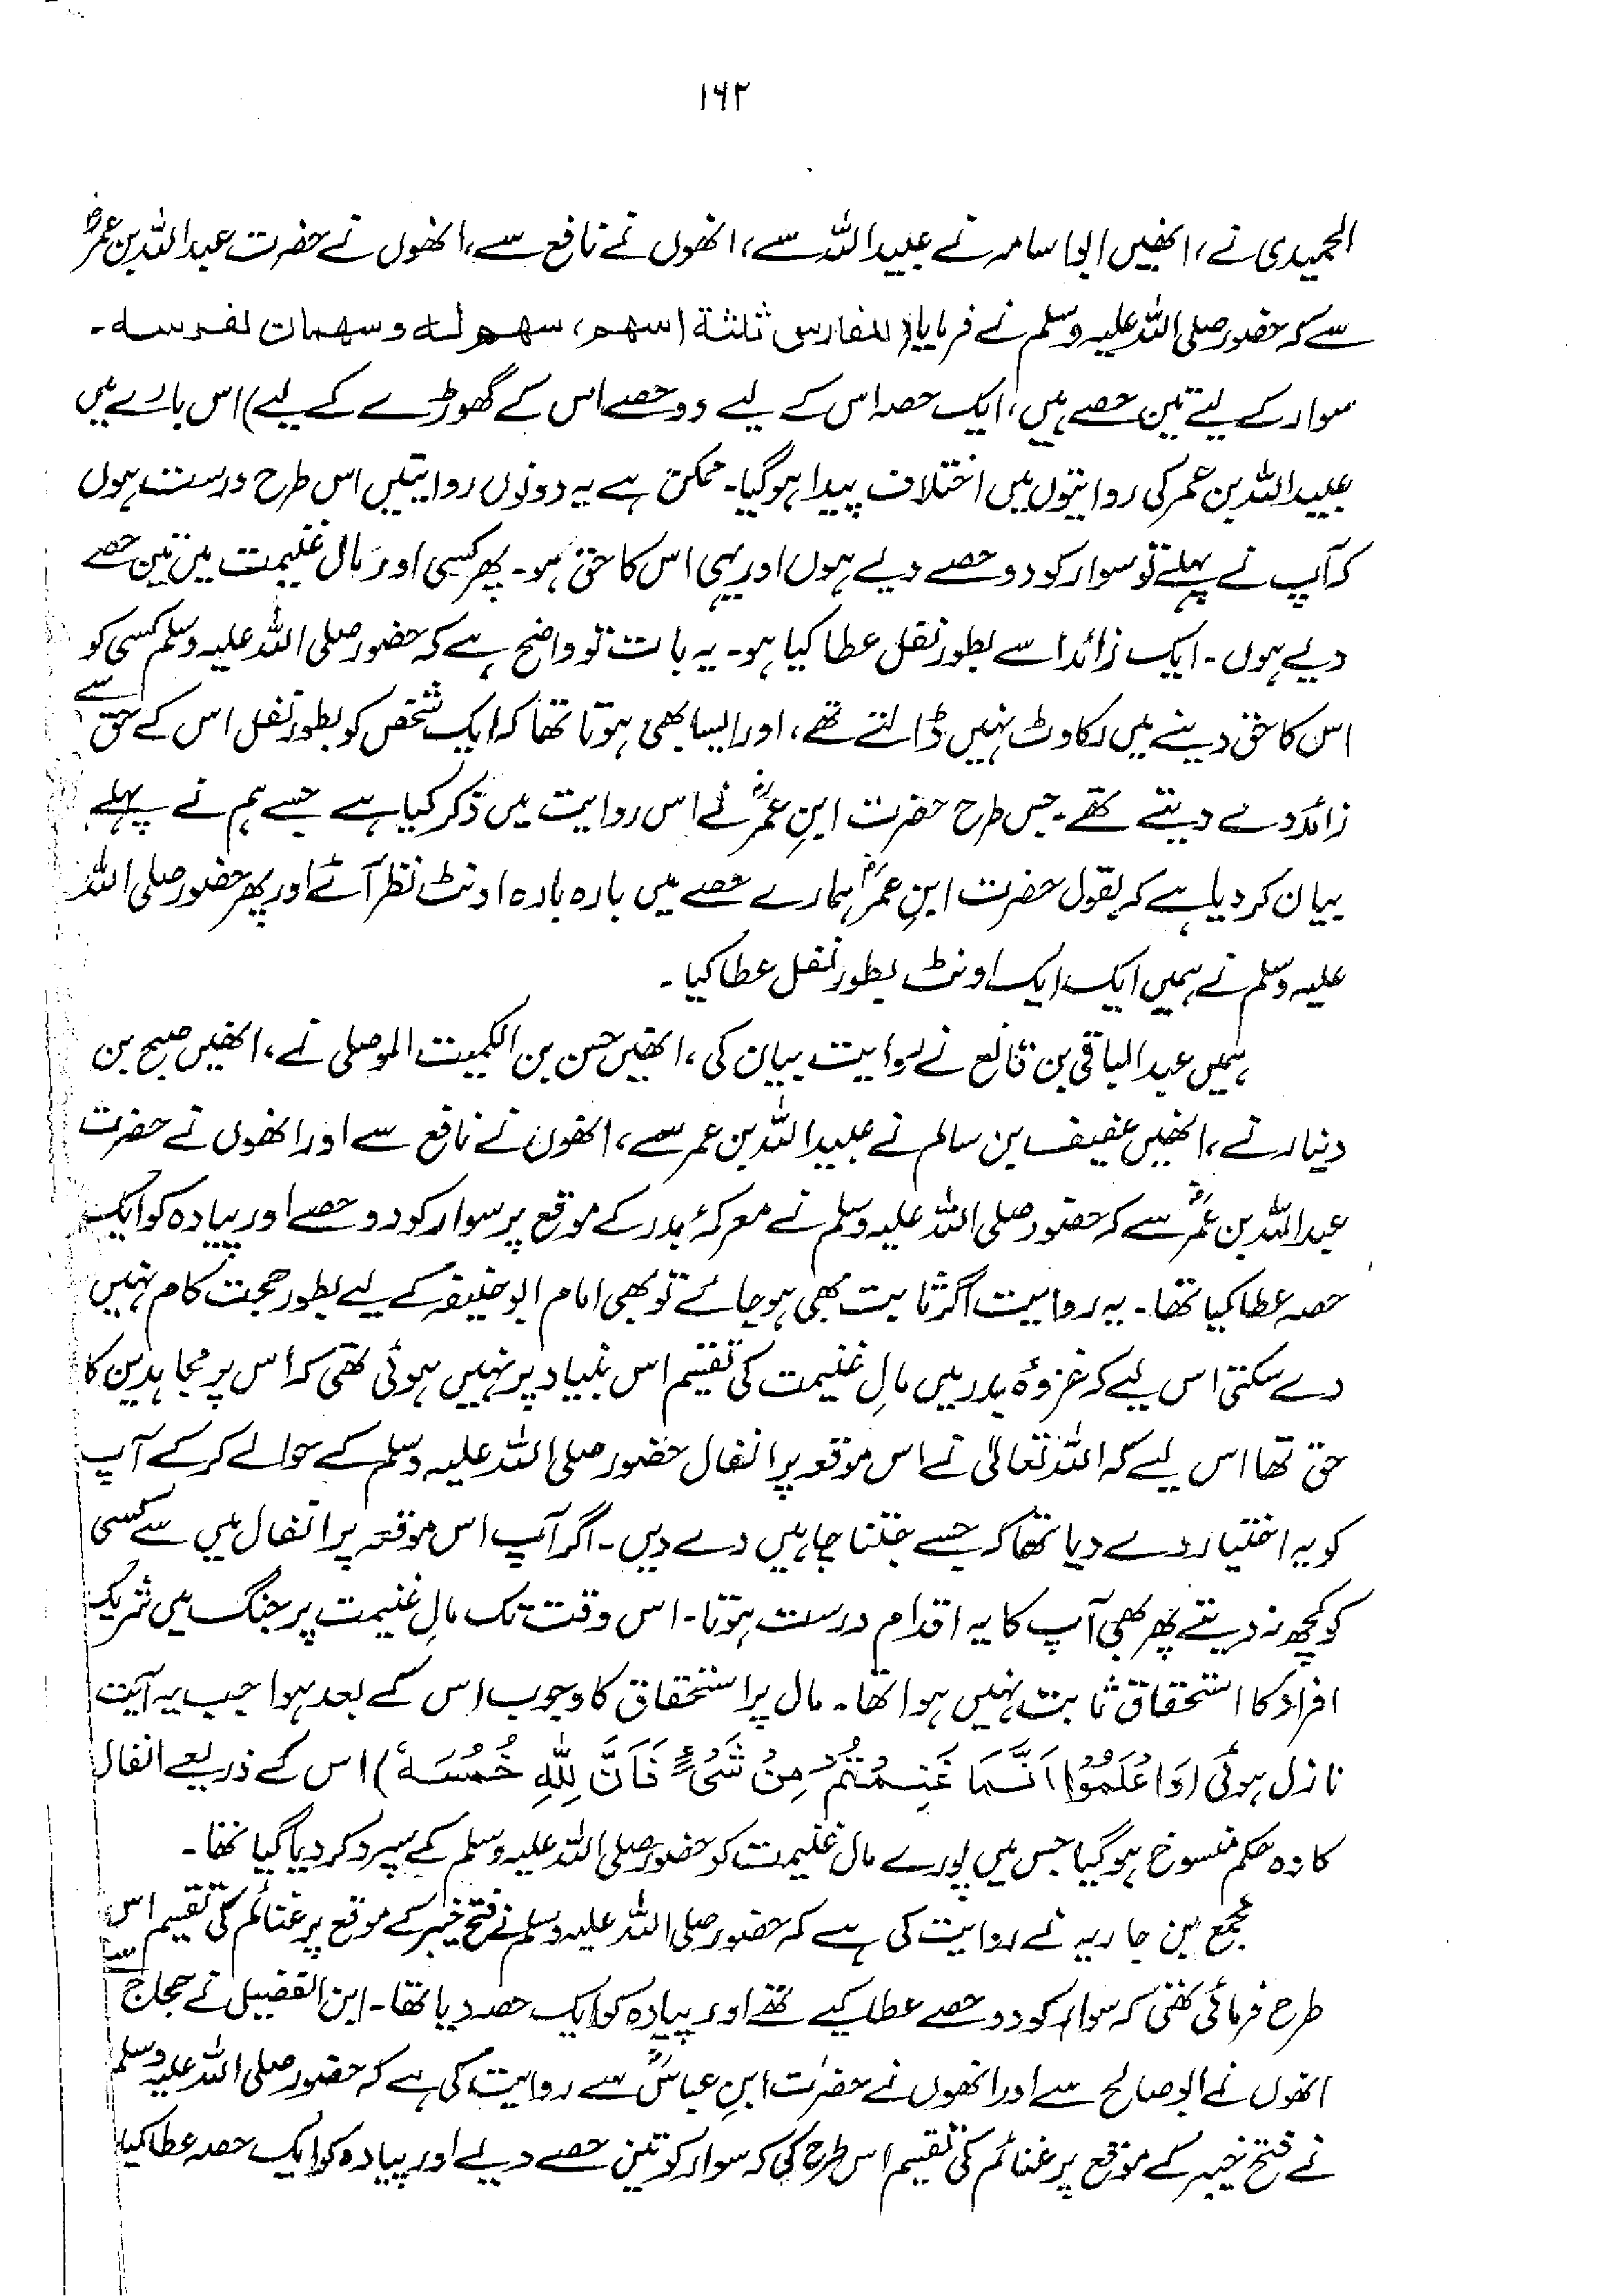 ۱۶۲
الحمیدی نے، انھیں ابو اسامہ نے عبیداللہ سے، انھوں نے نافع سے، انھوں نے حضرت عبداللہ بن عمرؓ
سے کہ حضور صلی اللہ علیہ وسلم نے فرمایا (للفارس ثلثة اسهم، سهم له وسهمان لفرسه۔
سوار کے لیے تین حصے ہیں، ایک حصہ اس کے لیے دو حصے اس کے گھوڑے کے لیے) اس بارے میں
عبیداللہ بن عمر کی روایتوں میں اختلاف پیدا ہو گیا۔ ممکن ہے یہ دونوں روایتیں اس طرح درست ہوں
کہ آپ نے پہلے تو سوار کو دو حصے دیے ہوں اور یہی اس کا حق ہو۔ پھر کسی اور مال غنیمت میں تین حصے
دیے ہوں۔ ایک زائد اسے بطور نفل عطا کیا ہو۔ یہ بات تو واضح ہے کہ حضور صلی اللہ علیہ وسلم کسی کو
اس کا حق دینے میں رکاوٹ نہیں ڈالتے تھے، اور ایسا بھی ہوتا تھا کہ ایک شخص کو بطور نفل اس کے حق سے
زائد دے دیتے تھے۔ جس طرح حضرت ابنِ عمرؓ نے اس روایت میں ذکر کیا ہے جسے ہم نے پہلے
بیان کر دیا ہے کہ بقول حضرت ابنِ عمرؓ ہمارے حصے میں بارہ بارہ اونٹ نظر آئے اور پھر حضور صلی اللہ
علیہ وسلم نے ہمیں ایک ایک اونٹ بطور نفل عطا کیا۔
ہمیں عبدالباقی بن قانع نے روایت بیان کی، انھیں حسن بن الکمیت الموصلی نے، انھیں صبح بن
دینار نے، انھیں عفیف بن سالم نے عبیداللہ بن عمر سے، انھوں نے نافع سے اور انھوں نے حضرت
عبداللہ بن عمرؓ سے کہ حضور صلی اللہ علیہ وسلم نے معرکۂ بدر کے موقع پر سوار کو دو حصے اور پیادہ کو ایک
حصہ عطا کیا تھا۔ یہ روایت اگر ثابت بھی ہو جائے تو بھی امام ابو حنیفہ کے لیے بطور حجت کام نہیں
دے سکتی اس لیے کہ غزوۂ بدر میں مالِ غنیمت کی تقسیم اس بنیاد پر نہیں ہوئی تھی کہ اس پر مجاہدین کا
حق تھا اس لیے کہ اللہ تعالیٰ نے اس موقعہ پر انفال حضور صلی اللہ علیہ وسلم کے حوالے کر کے آپ
کو یہ اختیار دے دیا تھا کہ جسے جتنا چاہیں دے دیں۔ اگر آپ اس موقعہ پر انفال میں سے کسی
کو کچھ نہ دیتے پھر بھی آپ کا یہ اقدام درست ہوتا۔ اس وقت تک مالِ غنیمت پر جنگ میں شریک
افراد کا استحقاق ثابت نہیں ہوا تھا۔ مال پر استحقاق کا وجوب اس کے بعد ہوا جب یہ آیت
نازل ہوئی (وَاعْلَمُوْا اَنَّمَا غَنِمْتُمْ مِنْ شَیْءٍ فَاَنَّ لِلّٰهِ خُمُسَهٗ) اس کے ذریعے انفال
کا وہ حکم منسوخ ہو گیا جس میں پورے مال غنیمت کو حضور صلی اللہ علیہ وسلم کے سپرد کر دیا گیا تھا۔
مجمع بن جاریہ نے روایت کی ہے کہ حضور صلی اللہ علیہ وسلم نے فتح خیبر کے موقع پر غنائم کی تقسیم اس
طرح فرمائی تھی کہ سوار کو دو حصے عطا کیے تھے اور پیادہ کو ایک حصہ دیا تھا۔ ابن الفضیل نے حجاج سے
انھوں نے ابو صالح سے اور انھوں نے حضرت ابنِ عباسؓ سے روایت کی ہے کہ حضور صلی اللہ علیہ وسلم
نے فتح خیبر کے موقع پر غنائم کی تقسیم اس طرح کی کہ سوار کو تین حصے دیے اور پیادہ کو ایک حصہ عطا کیا